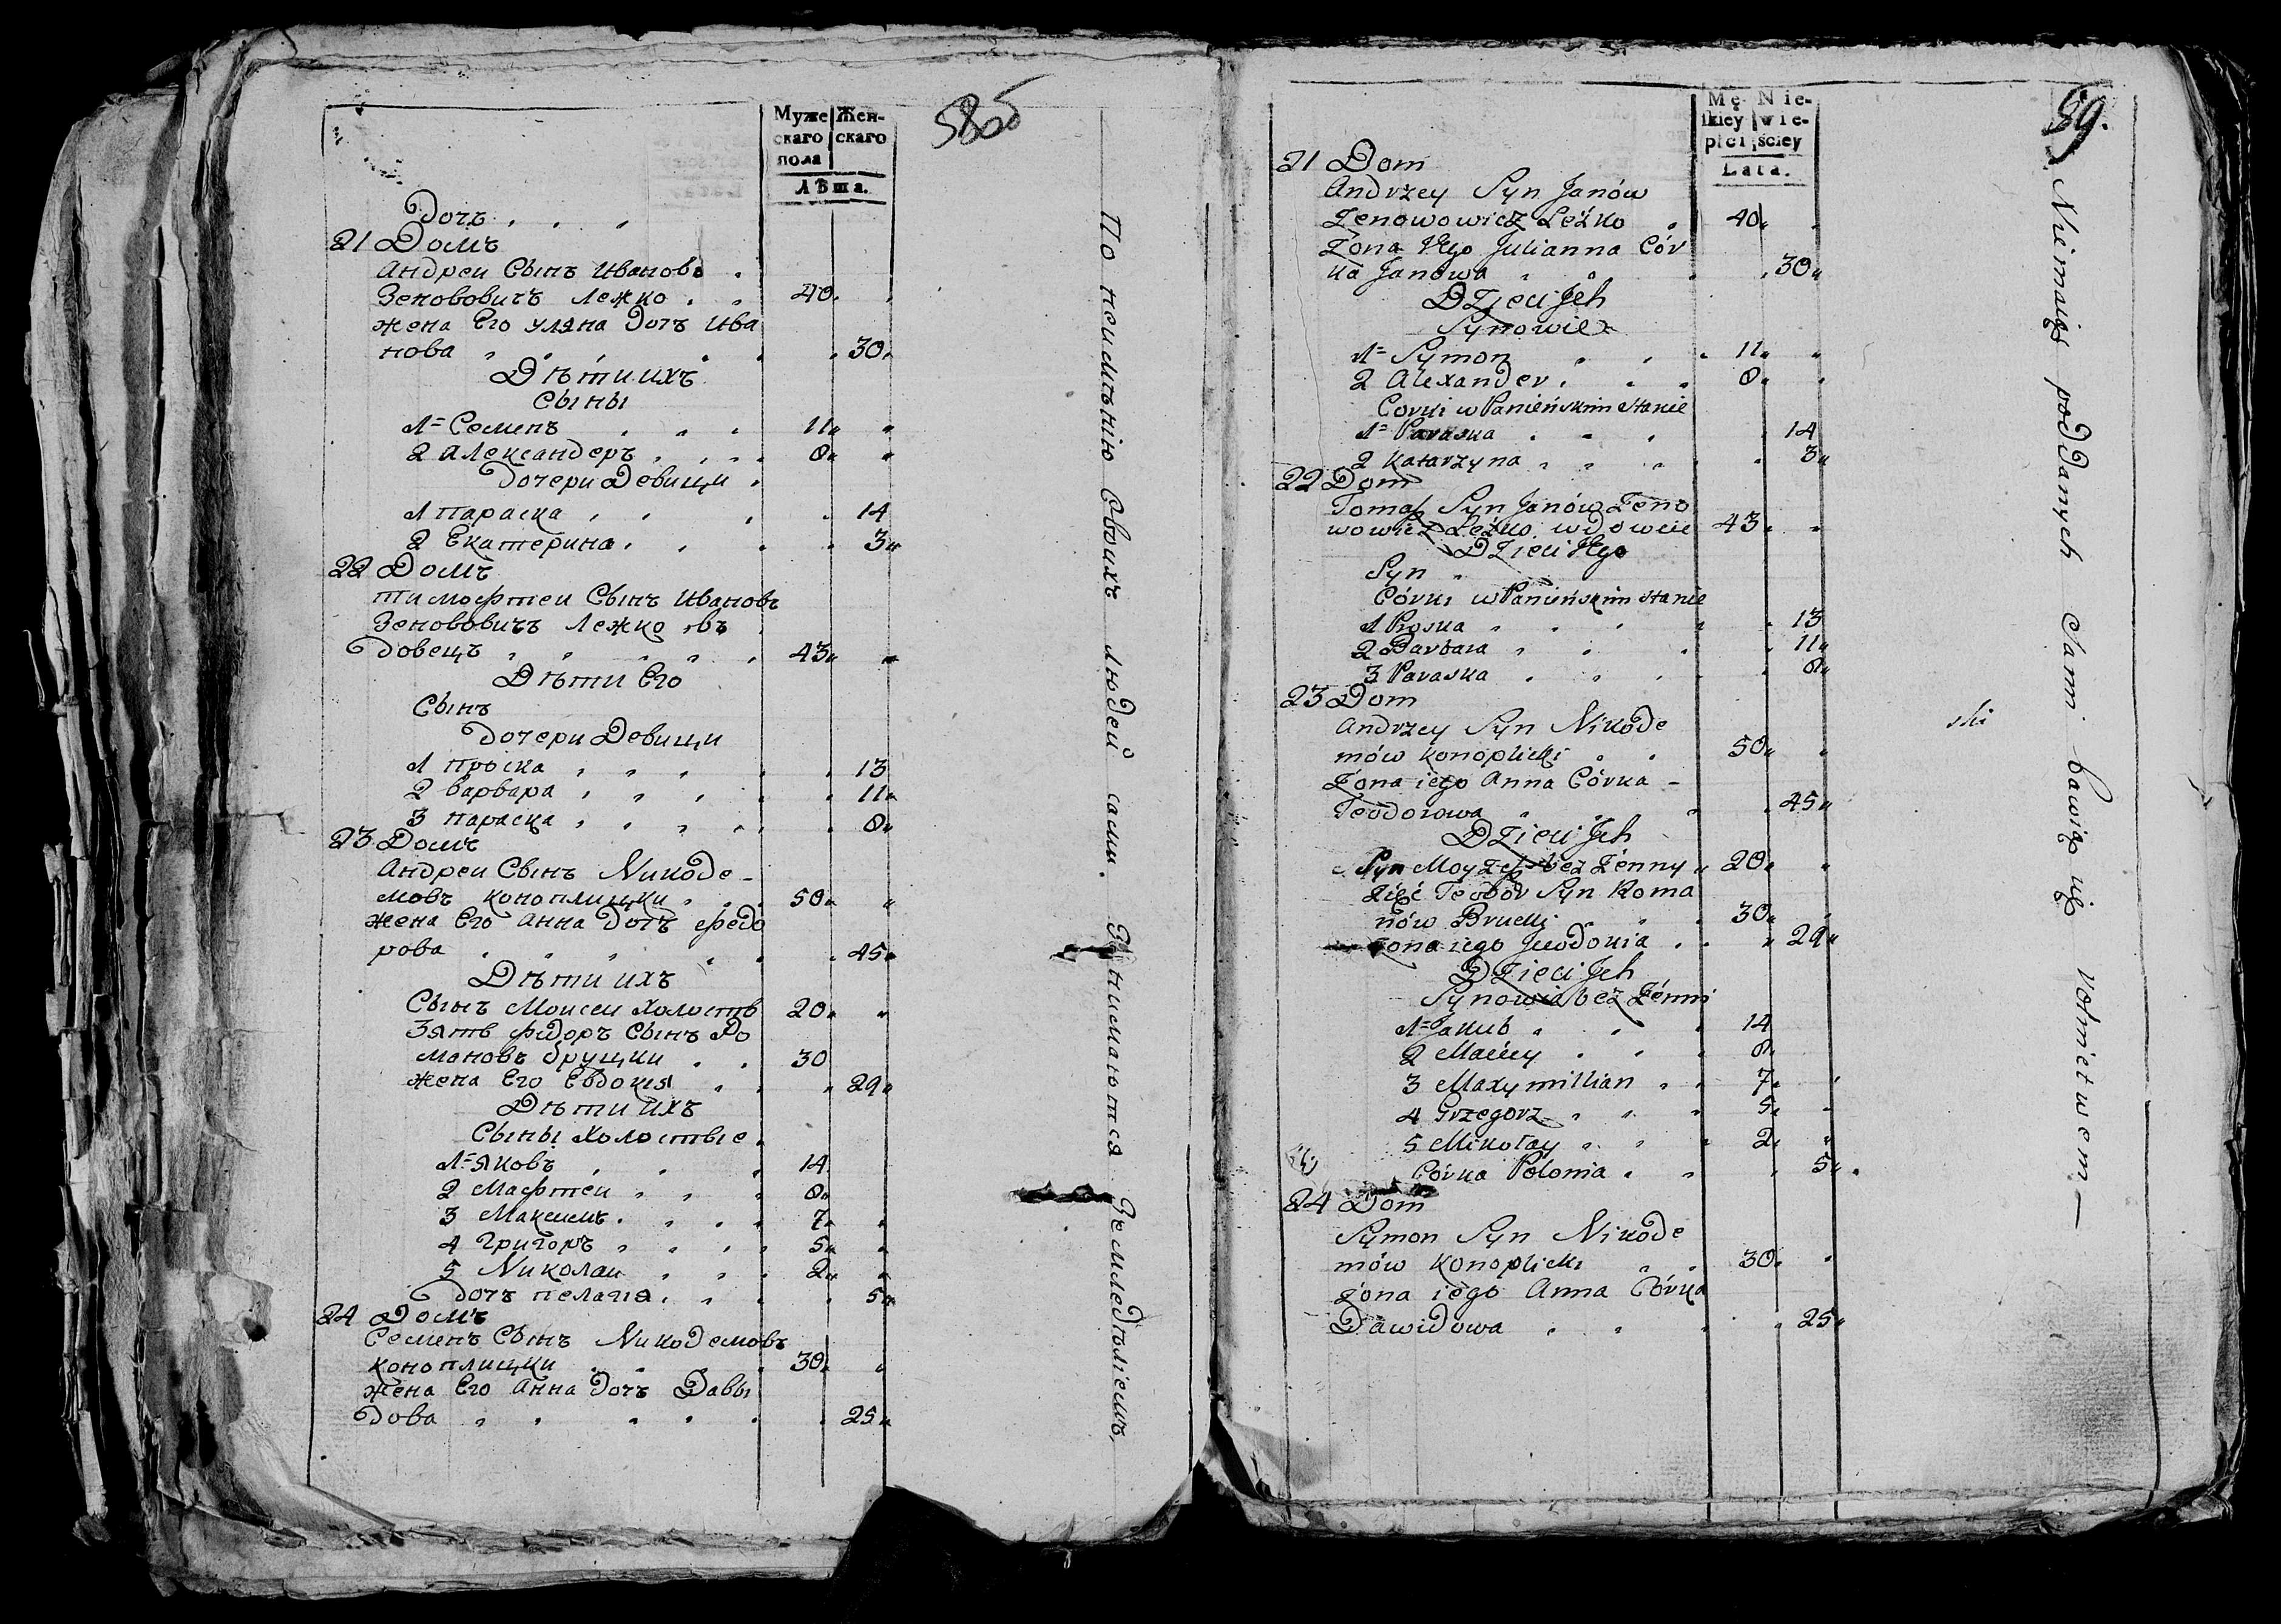 58об
Муже Жен-
скаго скаго
пола
Лѣта.
Дочь
21 Домъ
Андреи Сынъ Ивановъ
Зеновович​ъ Лежко 40
жена Его Уляна Дочь Ива
нова 30
Дѣти ихъ
Сыны
1 Семенъ 11
2 Александеръ 8
Дочери Девици
1 Параска 14
2 Екатерина 3
22 Домъ
Тимофтеи Сынъ Ивановъ
Зенововичъ Лежко въ
довецъ 43
Дѣти Его
Сынъ
Дочери Девици
1 Проска 13
2 Варвара 11
3 Параска 8
23 Домъ
Андреи Сынъ Никоде-
мовъ Коноплицки 50
жена Его Анна Дочь Федо
рова 45
Дѣти ихъ
Сынъ Моисеи Холостъ 20
Зять Фидоръ Сынъ Ро
мановъ Бруцки 30
жена Его Евдокия 29
Дѣти ихъ
Сыны Холостые
1 Яковъ 14
2 Мафтеи 8
3 Максимъ 7
4 Григоръ 5
5 Николаи 2
Дочь Пелагия 5
24 Домъ
Семенъ Сынъ Никодемовъ
Коноплицки 30
жена Его Анна Дочь Давы
дова 25
По неимѣнію Своихъ людей сами. Занимаются Земледѣліемъ,
59.
Mę- Nie-
ſkiey wie-
płci ściey
Lata.
21 Dom
Andrzey Syn Janów
Zenowowicz Leżko 40
Zona Jego Julianna Cór
ka Janowa 30
Dzieci Jch
Synowie
1 Symon 11
2 Alexander 8
Corki w Panieńskim stanie
1 Paraska 14
2 Katarzyna 3
22 Dom
Tomaſz Syn Janów Zeno
wowicz Leżko wdowiec 43
Dzieci Jego
Syn
Córki w Panieńskim stanie
1 Proska 13
2 Barbara 11
3 Paraska 8
23 Dom
Andrzey Syn Nikode
mów Konoplicki 50
Zona iego Anna Córka -
Teodorowa 45
Dzieci Jch
Syn Moyzeſz bez Żenny 20
Zięć Teodor Syn Roma
nów Brucki 30
Zona iego Jewdokia 29
Dzieci Jch
Synowie bez Żenni
1 Jakub 14
2 Maciey 8
3 Maxymillian 7
4 Grzegorz 5
5 Mikołay 2
Córka Polonia 5
24 Dom
Symon Syn Nikode
mów Konoplicki 30
Zona iego Anna Córka
Dawidowa 25
Niemaiąc poddanych Sami bawią się rolnictwem —
ski